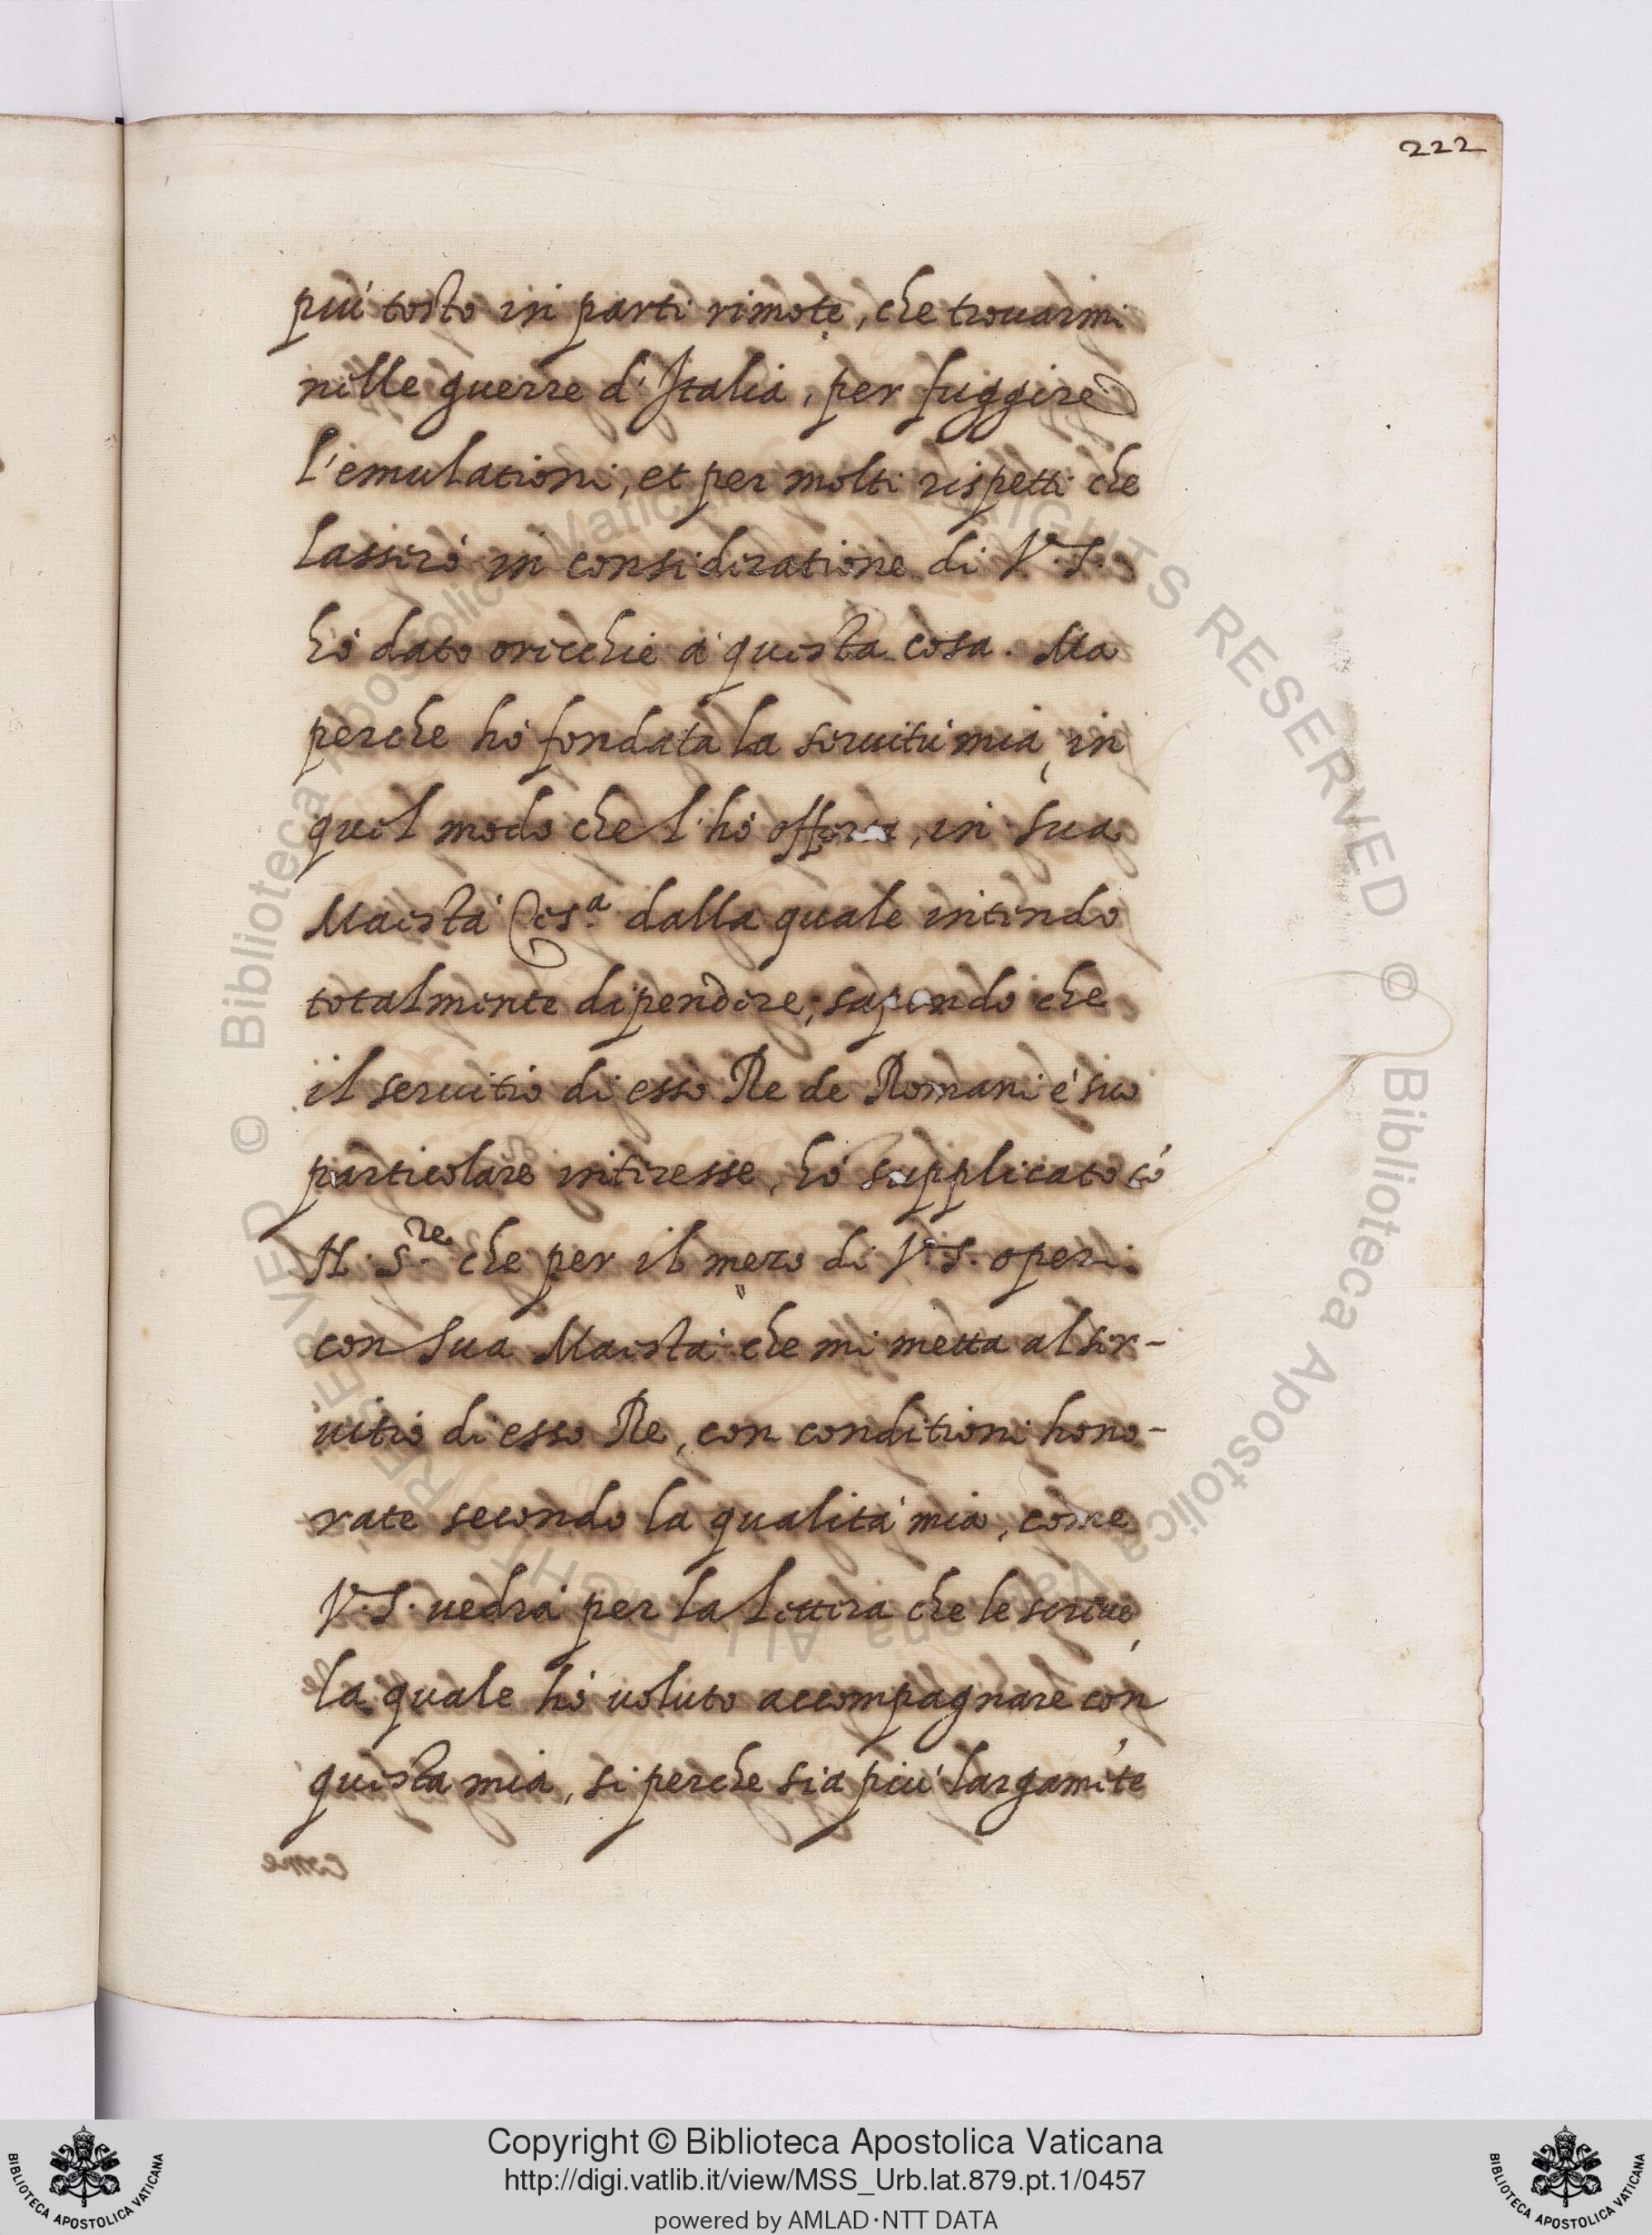 222
più tosto in parti rimote, che trouarmi
nelle guerre d'Italia, per fuggire
l'emulationi, et per molti rispetti che
lasserò in consideratione di V. S.
hò dato orecchie à questa cosa. Ma
perche hò fondata la seruitù mia, in
quel modo che l'hò offerta, in sua
Maestà Ces.ª dalla quale intendo
totalmente dipendere, sapendo che
il seruitio di esso Re de Romani è suo
particolare interesse, hò supplicato cò
N. S.re che per il mezo di V. S. operi
con sua Maestà che mi metta al ser-
uitio di esso Re, con conditioni hono-
rate secondo la qualità mia, come
V. S. uedrà per la lettera che le scriue,
la quale hò uoluto accompagnare con
questa mia, si perche sia più largamẽte
Biblioteca Apostolica Vaticana ALL RIGHTS RESERVED © Biblioteca Apostolica Vaticana ALL RIGHTS RESERVED ©
Copyright © Biblioteca Apostolica Vaticana
http://digi.vatlib.it/view/MSS_Urb.lat.879.pt.1/0457
powered by AMLAD·NTT DATA
BIBLIOTECA APOSTOLICA VATICANA
BIBLIOTECA APOSTOLICA VATICANA